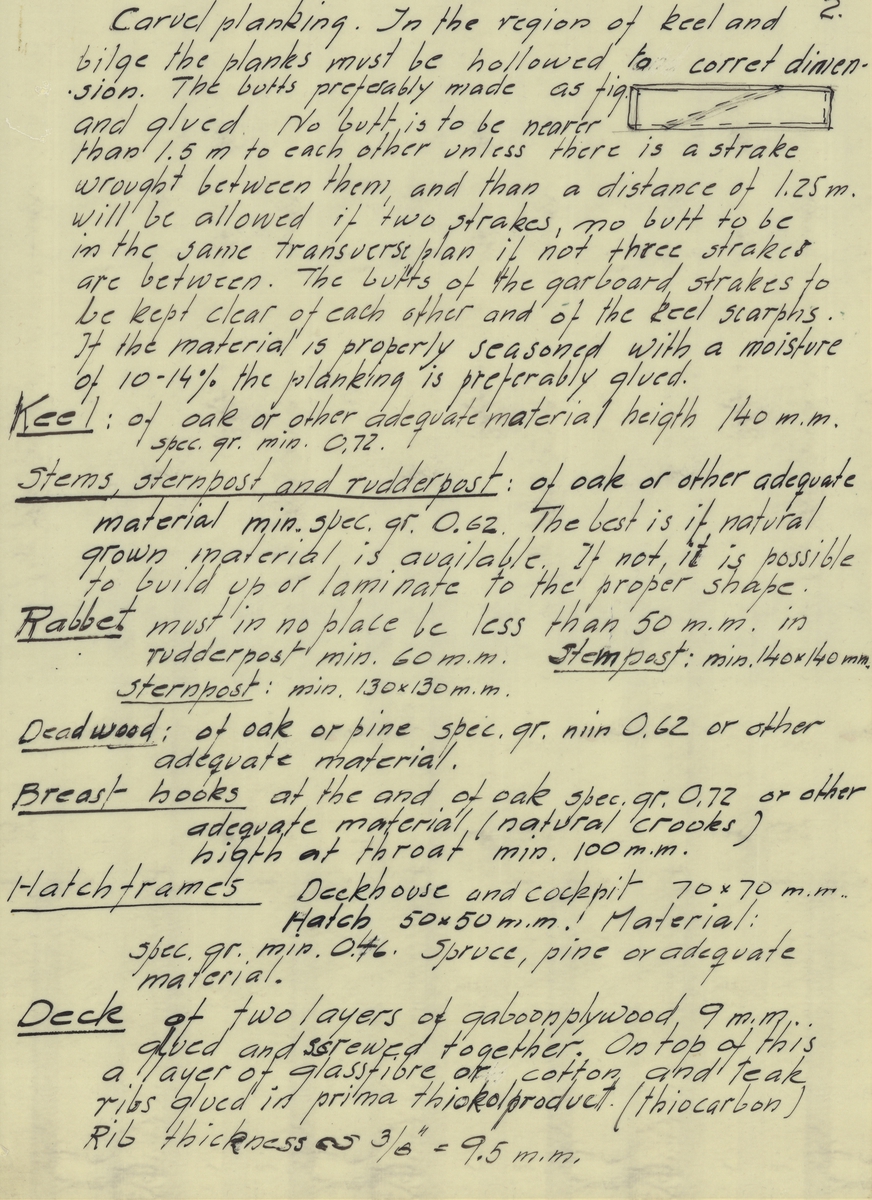 2.
Carvel planking. In the region of keel and
bilge the planks must be hollowed to corret dimen-
sion. The butts preferably made as fig.
and glued. No butt is to be nearer
than 1.5 m to each other unless there is a strake
wrought between them, and than a distance of 1.25 m.
will be allowed if two strakes, no butt to be
in the same transverse plan if not three strakes
are between. The butts of the garboard strakes to
be kept clear of each other and of the keel scarphs.
If the material is properly seasoned with a moisture
of 10-14% the planking is preferably glued.
Keel: of oak or other adequate material heigth 140 m.m.
spec. gr. min. 0,72.
Stems, sternpost and rudderpost: of oak or other adequate
material min. spec. gr. 0.62. The best is if natural
grown material is available. If not, it is possible
to build up or laminate to the proper shape.
Rabbet must in no place be less than 50 m.m. in
rudderpost min. 60 m.m. Stempost: min. 140x140 mm.
Sternpost: min. 130x130 m.m.
Deadwood: of oak or pine spec. gr. min 0.62 or other
adequate material.
Breast hooks at the and of oak spec. gr. 0.72 or other
adequate material (natural crooks)
higth at throat min. 100 m.m.
Hatchframes Deckhouse and cockpit 70x70 m.m.
Hatch 50x50 m.m. Material:
spec. gr. min. 0.46. Spruce, pine or adequate
material.
Deck of two layers of gaboonplywood, 9 m.m.
glued and screwed together. On top of this
a layer of glassfibre or cotton and teak
ribs glued in prima thiokolproduct. (thiocarbon)
Rib thickness ~ 3/8" = 9.5 m.m.